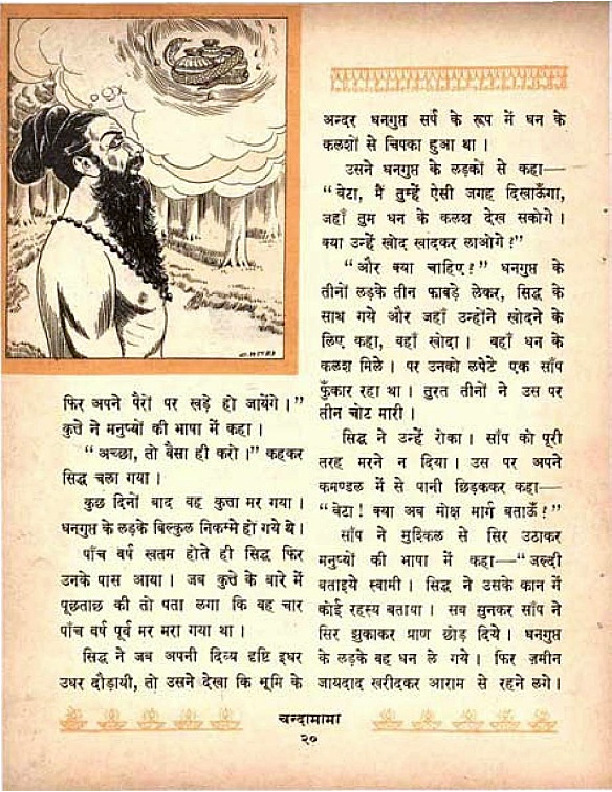 फिर अपने पैरों पर खड़े हो जायेंगे।”
कुत्ते ने मनुष्यों की भाषा में कहा।
“अच्छा, तो वैसा ही करो।” कहकर
सिद्ध चला गया।
कुछ दिनों बाद वह कुत्ता मर गया।
धनगुप्त के लड़के बिल्कुल निकम्मे हो गये थे।
पाँच वर्ष खतम होते ही सिद्ध फिर
उनके पास आया। जब कुत्ते के बारे में
पूछताछ की तो पता लगा कि वह चार
पाँच वर्ष पूर्व मर मरा गया था।
सिद्ध ने जब अपनी दिव्य दृष्टि इधर
उधर दौड़ायी, तो उसने देखा कि भूमि के
अन्दर धनगुप्त सर्प के रूप में धन के
कलशों से चिपका हुआ था।
उसने धनगुप्त के लड़कों से कहा—
“बेटा, मैं तुम्हें ऐसी जगह दिखाऊँगा,
जहाँ तुम धन के कलश देख सकोगे।
क्या उन्हें खोद खादकर लाओगे?”
“और क्या चाहिए?” धनगुप्त के
तीनों लड़के तीन फाबड़े लेकर, सिद्ध के
साथ गये और जहाँ उन्होंने खोदने के
लिए कहा, वहाँ खोदा। वहाँ धन के
कलश मिले। पर उनको लपेटे एक साँप
फुँकार रहा था। तुरत तीनों ने उस पर
तीन चोट मारी।
सिद्ध ने उन्हें रोका। साँप को पूरी
तरह मरने न दिया। उस पर अपने
कमण्डल में से पानी छिड़ककर कहा—
“बेटा! क्या अब मोक्ष मार्ग बताऊँ?”
साँप ने मुश्किल से सिर उठाकर
मनुष्यों की भाषा में कहा—“जल्दी
बताइये स्वामी। सिद्ध ने उसके कान में
कोई रहस्य बताया। सब सुनकर साँप ने
सिर झुकाकर प्राण छोड़ दिये। धनगुप्त
के लड़के वह धन ले गये। फिर ज़मीन
जायदाद खरीदकर आराम से रहने लगे।
चन्दामामा
२०